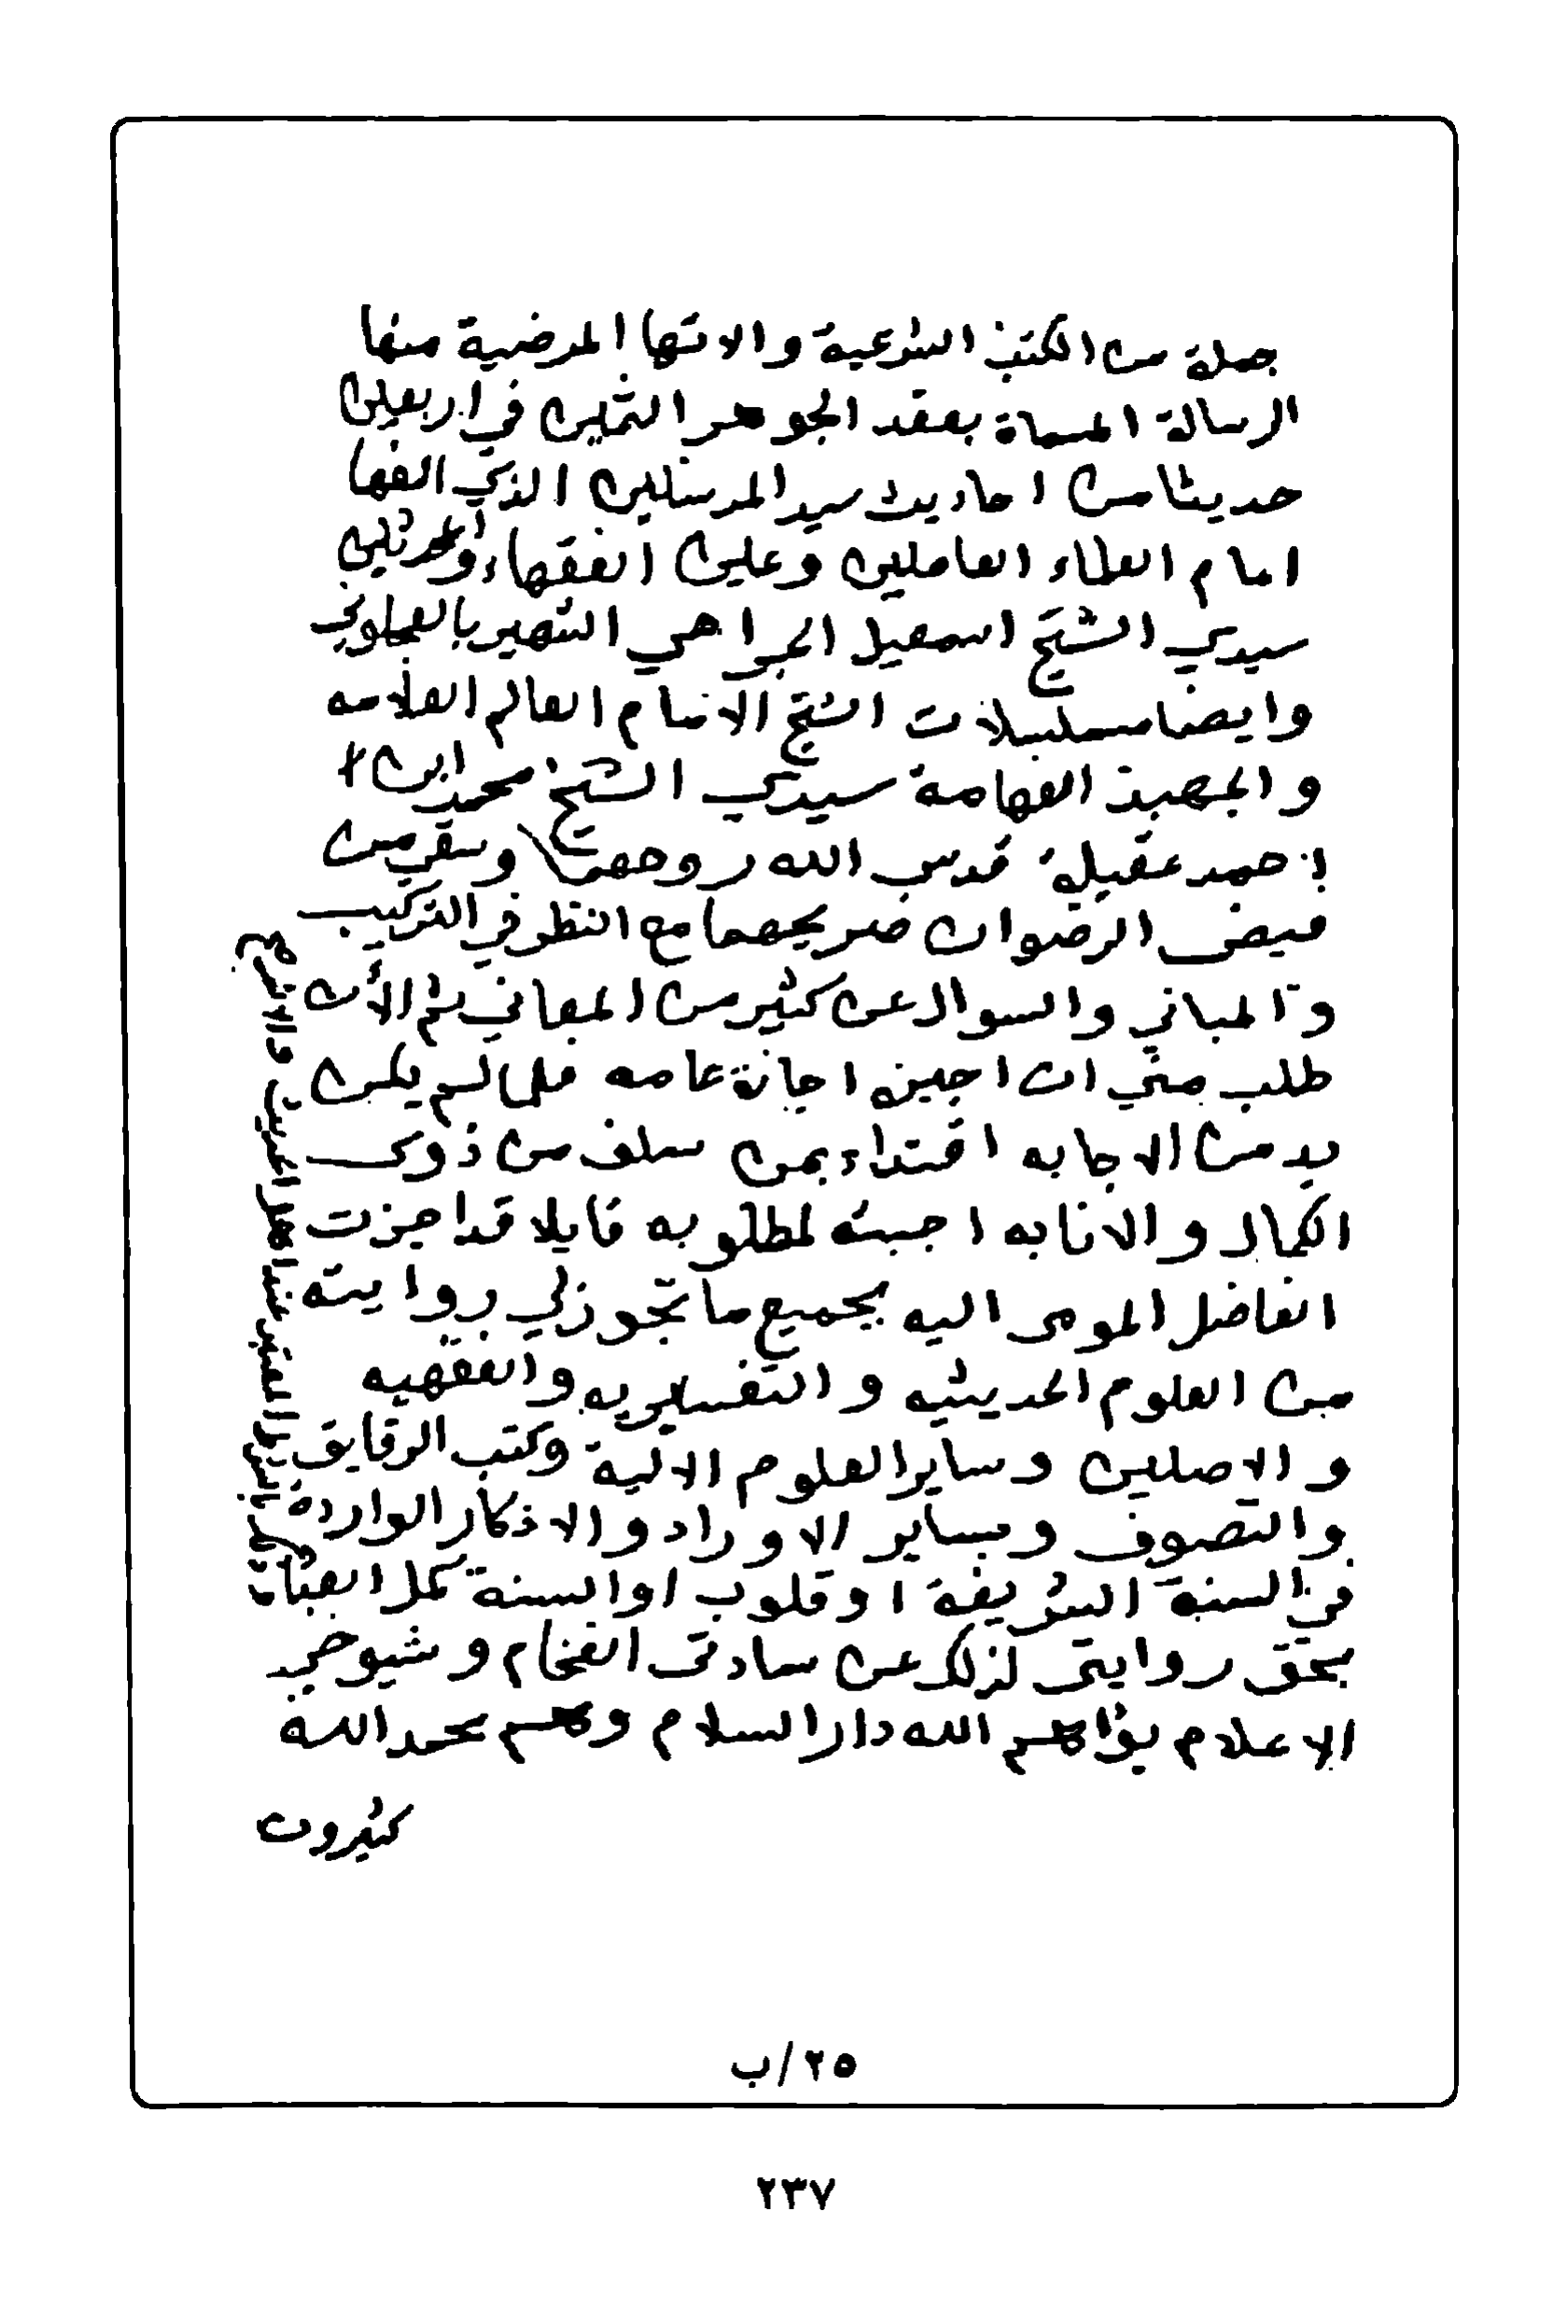 جملة من الكتب الشرعية والاتها المرضية منها
الرسالة المسماة بعقد الجوهر الثمين في اربعين
حديثا من احاديث سيد المرسلين الذي الفها
امام العلماء العاملين وعين الفقهاء والمحدثين
سيدي الشيخ اسمعيل الجراحي الشهير بالعجلوني
وايضا مسلسلات الشيخ الامام العالم العلامه
والجهبذ الفهامة سيدي الشيخ محمد ابن
احمد عقيلة قدس الله روحهما وسقى من
فيض الرضوان ضريحهما مع النظر في التركيب
والمباني والسوال عن كثير من المعاني ثم الأن
طلب مني ان اجيزه اجازة عامه فلما لم يكن
بد من الاجابه اقتداء بمن سلف من ذوي
الكمال والانابه اجبته لمطلوبه قايلا قد اجزت
الفاضل المومى اليه بجميع ما تجوز لي روايته
من العلوم الحديثيه والتفسيريه والفقهيه
والاصلين وساير العلوم الالية وكتب الرقايق
والتصوف وساير الاوراد والاذكار الواردة
في السنة الشريفة او قلوب او السنة كمل
بحق روايتي لذلك عن سادتي الفخام وشيوخي
الاعلام بوأهم الله دار السلام وهم بحمد الله
كثيرون
٢٥/ب
٢٣٧